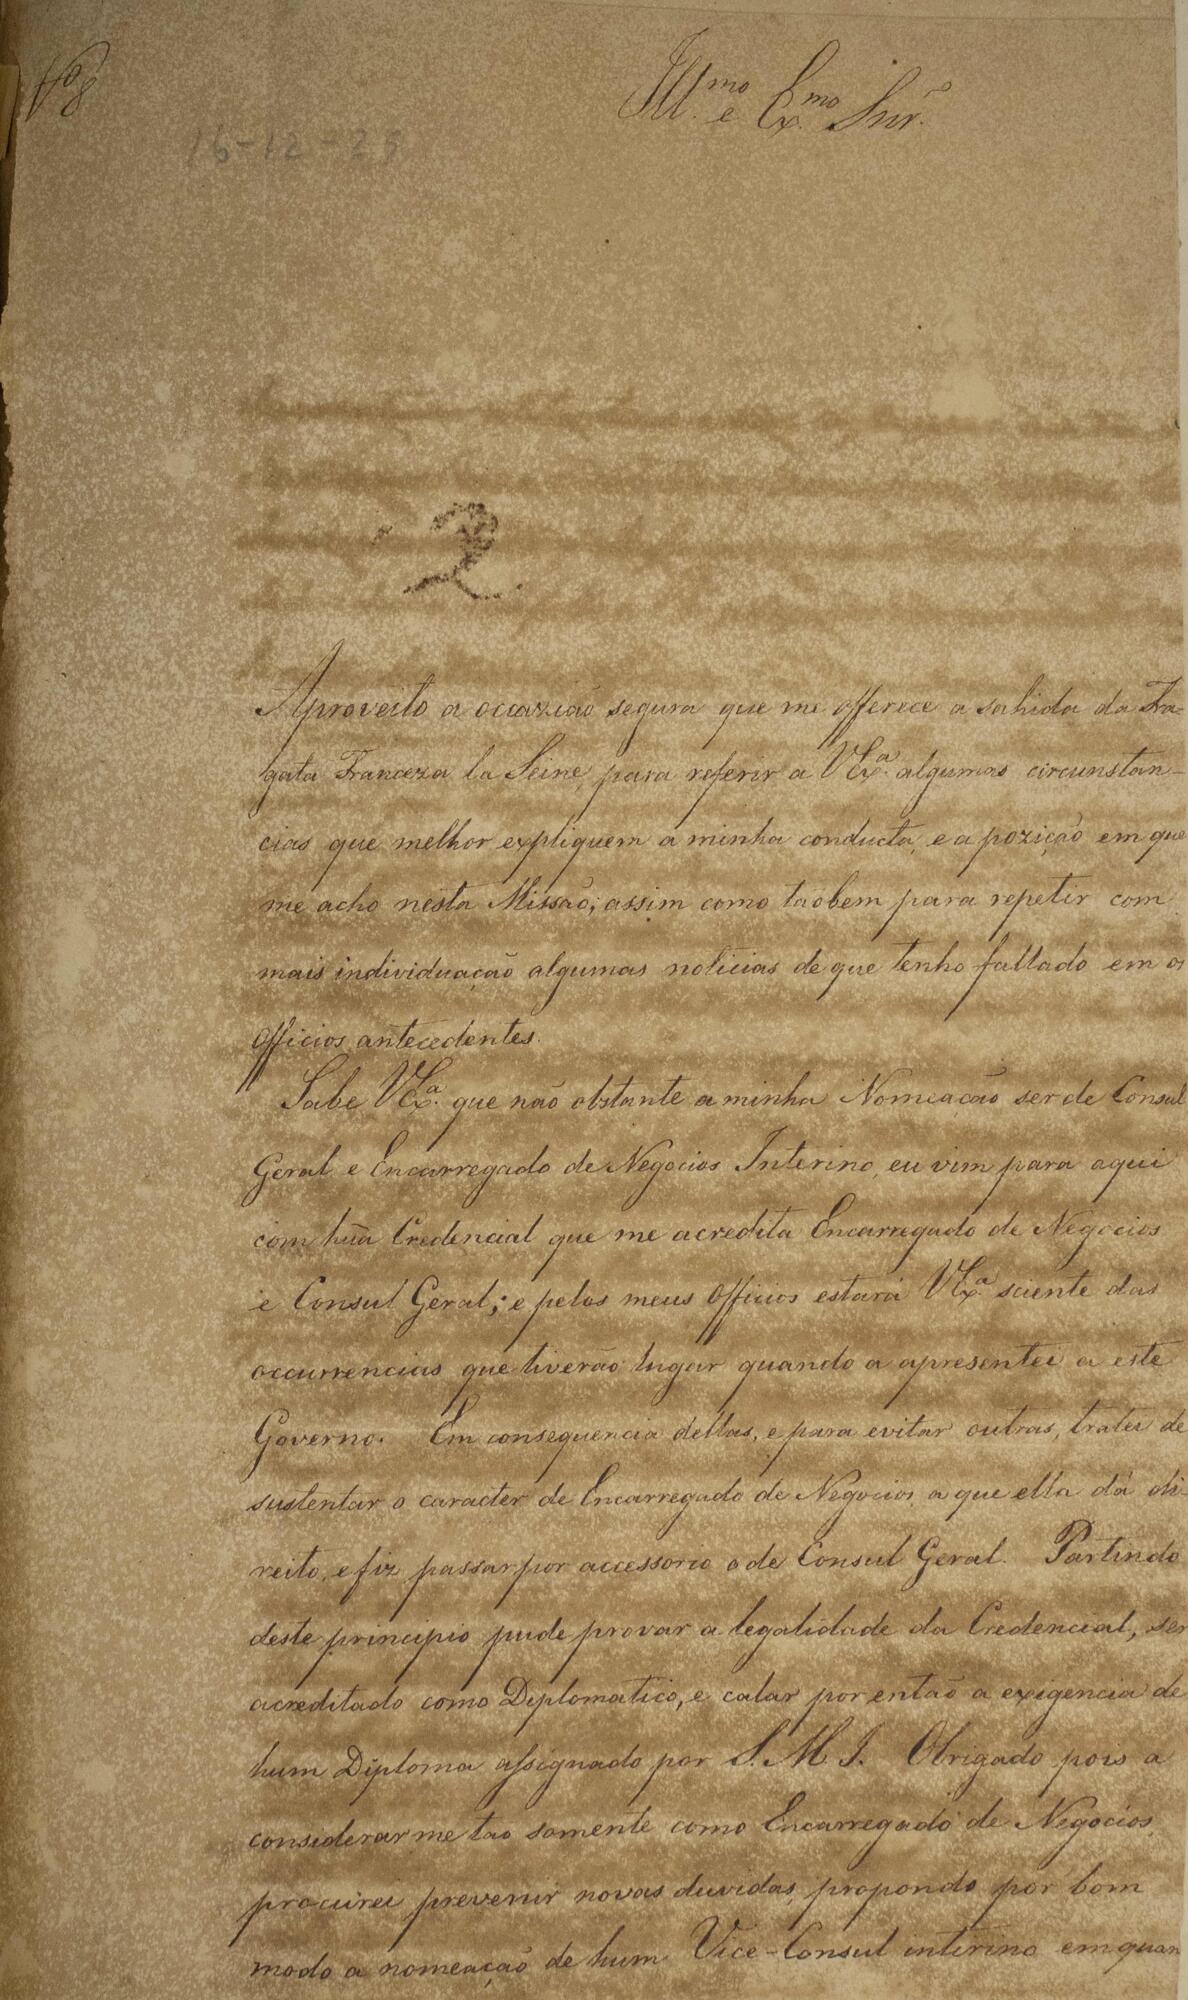 Nº 8
Ill.mo e Ex.mo Snr.
16-12-25
2
Aproveito a occazião segura que me offerece a sahida da Fra-
gata Franceza la Seine, para referir a VEx.ª algumas circunstan-
cias que melhor expliquem a minha conducta, e a pozição em que
me acho nesta Missão; assim como taobem para repetir com
mais individuação algumas noticias de que tenho fallado em os
Officios antecedentes.
Sabe VEx.ª que não obstante a minha Nomeação ser de Consul
Geral e Encarregado de Negocios Interino, eu vim para aqui
com hũa Credencial que me acredita Encarregado de Negocios
e Consul Geral; e pelos meus Officios estará VEx.ª sciente das
occurrencias que tiverão lugar quando a apresentei a este
Governo. Em consequencia dellas, e para evitar outras, tratei de
sustentar o caracter de Encarregado de Negocios, a que ella dá di-
reito, e fiz passar por accessorio o de Consul Geral. Partindo
deste principio pude provar a legalidade da Credencial, ser
acreditado como Diplomatico, e calar por então a exigencia de
hum Diploma assignado por S. M. I. Obrigado pois a
considerar me tao somente como Encarregado de Negocios,
procurei prevenir novas duvidas, propondo por bom
modo a nomeação de hum Vice-Consul interino em quan